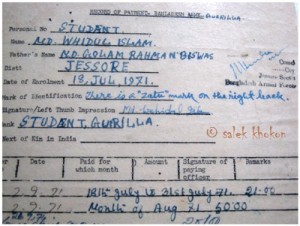 RECORD OF PAYMENT, BANGLADESH ARMY. GUERILLA
Personal No STUDENT.
Name MD. WHIDUL ISLAM.
Father's Name MD GOLAM RAHMAN BISWAS
Distt JESSORE
Date of Enrolment 18 JUL, 1971.
Bangladesh
Mark of Identification There is a mark on the right
Signature/Left Thumb Impression
© salek khokon
Rank STUDENT, GURILLA.
Next of Kin in India
Date Paid for which month Amount Signature of paying officer Remarks
2.9.71 18th July to 31st July 71. 21.00
2.9.71 Month of Aug 71 50.00